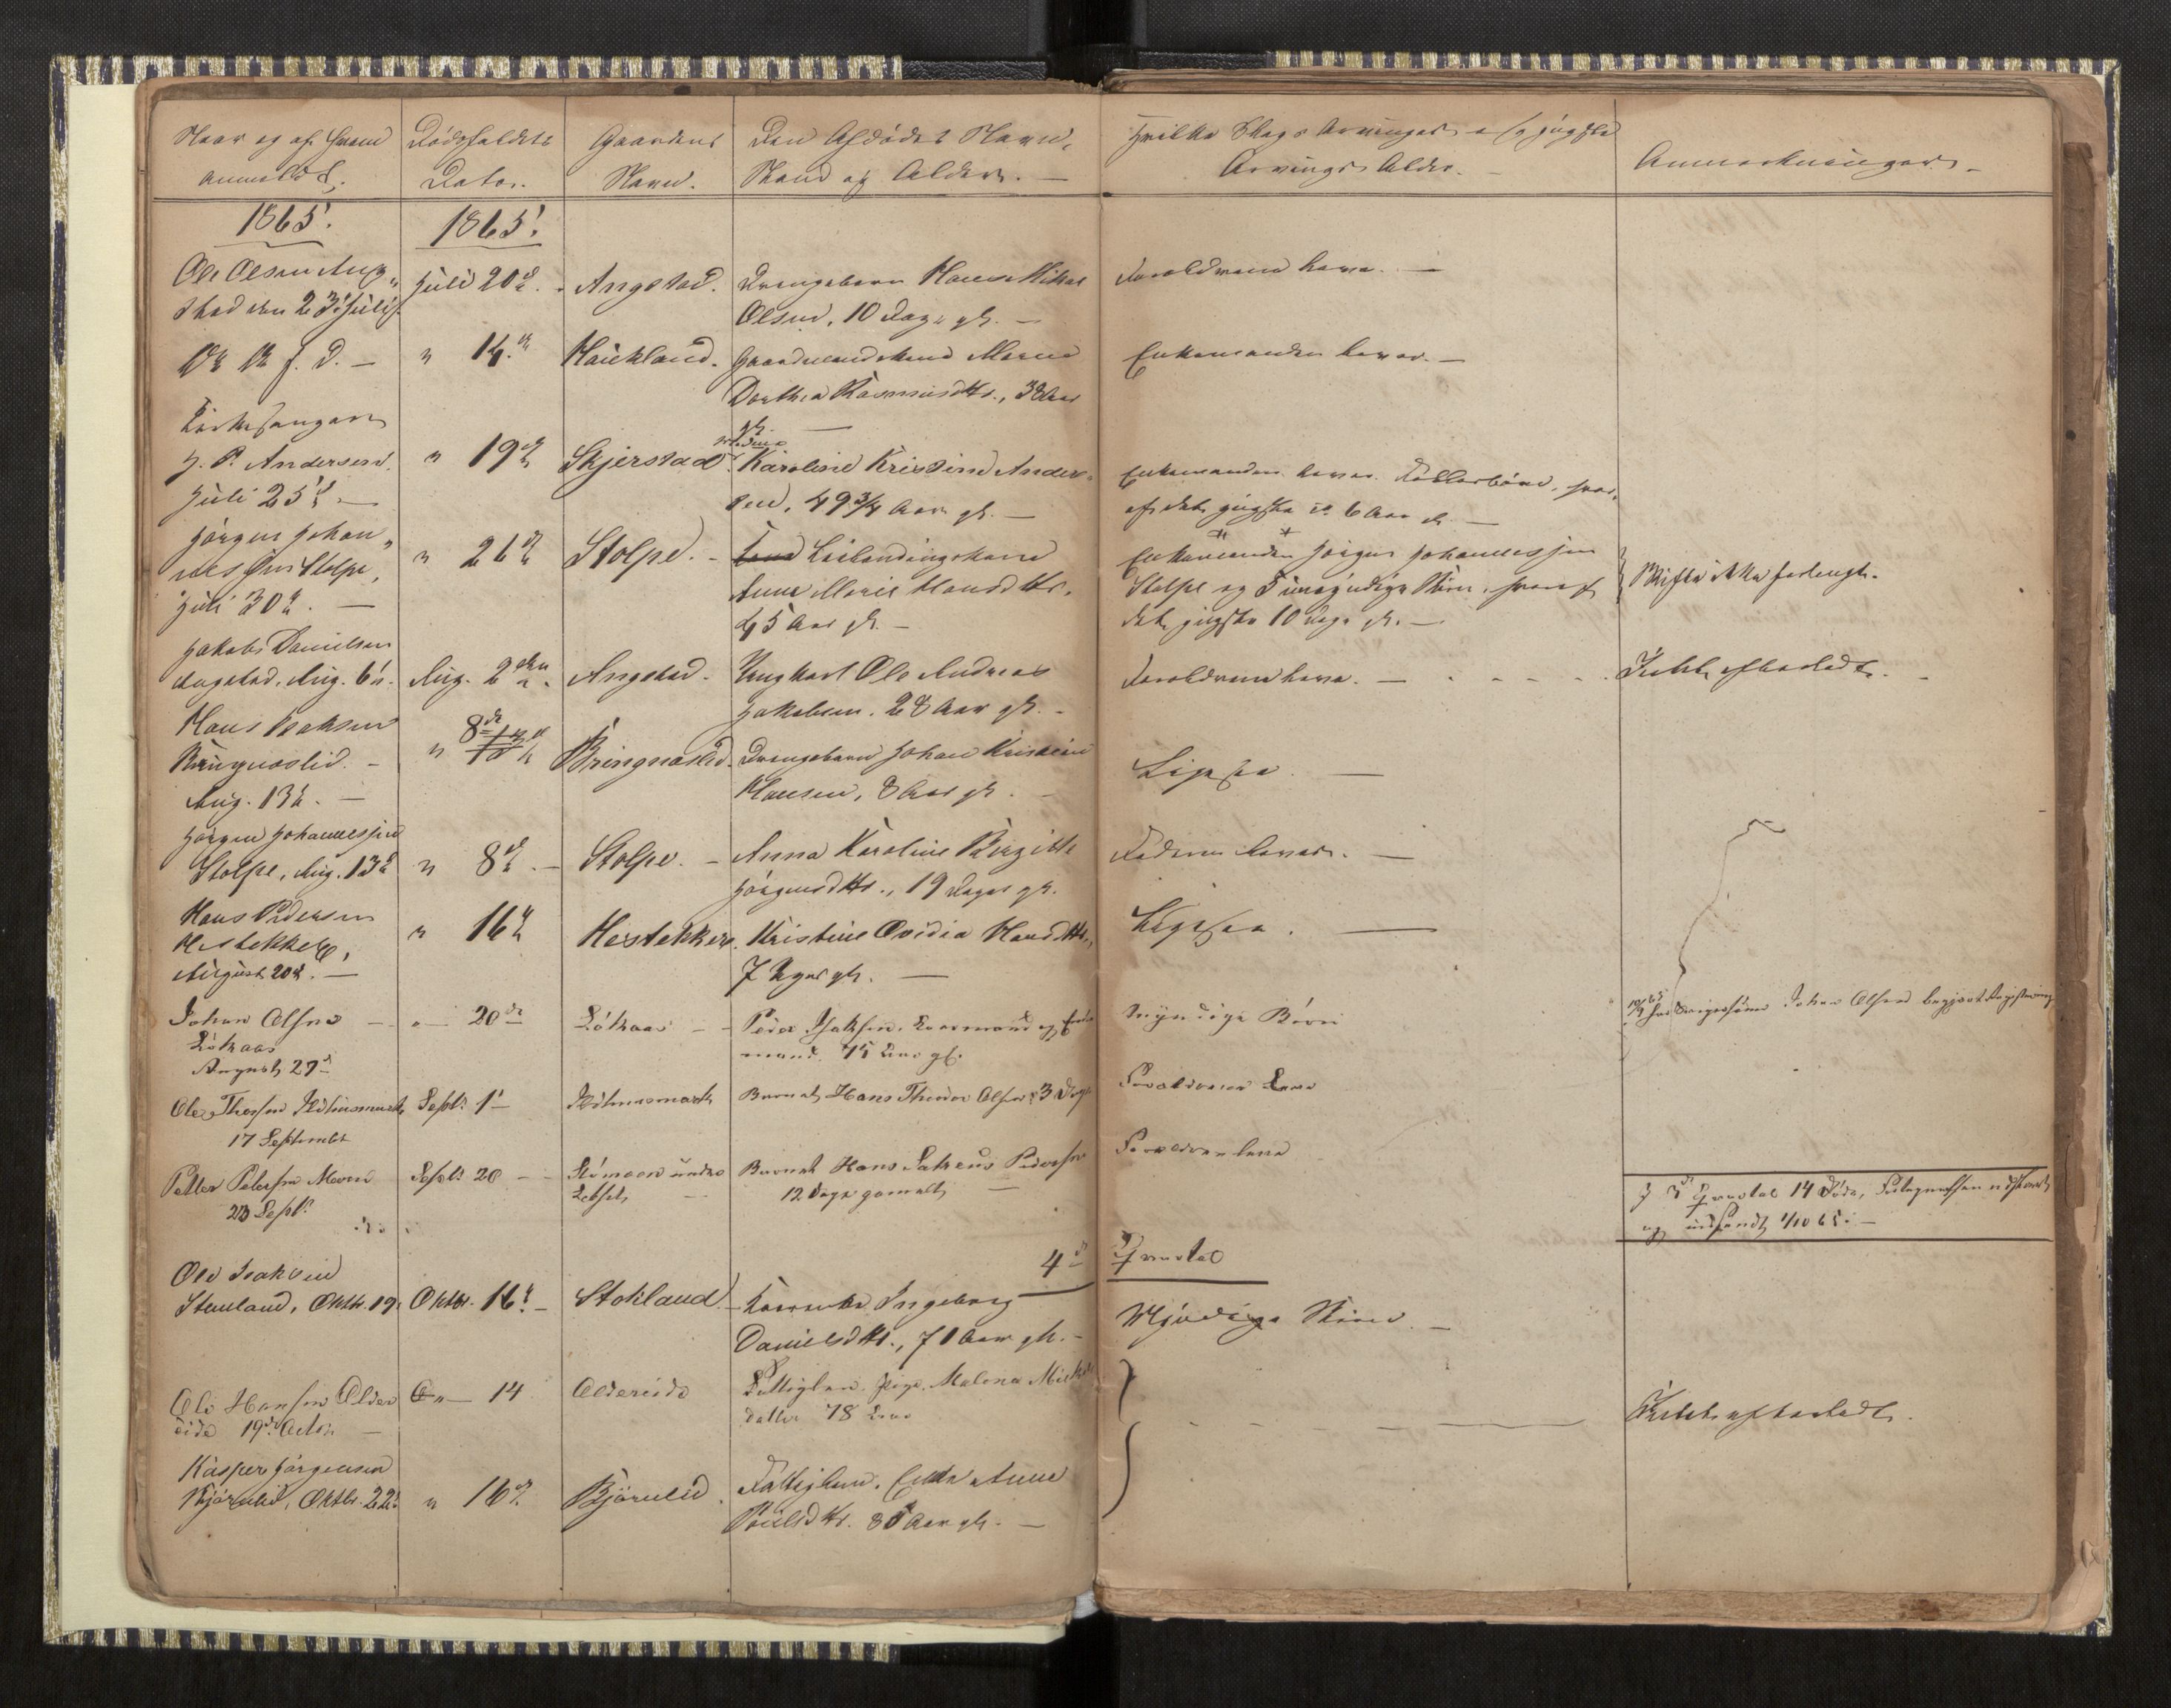 Naar og af hvem
anmeldt.
Dødsfaldets
Dato.
Gaardens
Navn.
Den Afdødes Navn,
Stand og Alder. —
Hvilke Slags Arvinger og yngste
Arvings Alder. —
Anmærkninger. —
1865.
1865.
Ole Olsen Ang-
stad den 23 Juli
Juli 20de.
Angstad.
Drengebarn Hans Mikal
Olsen, 10 Dage gl. —
Forældrene leve. —
f. D. —
" 14de
Haukland.
Gaardmandskone Maren
Dorthea Rasmusdtr., 38 Aar
gl. —
Enkemanden lever. —
Kirkesanger
J. P. Andersen.
Juli 25de. —
" 19de
Skjerstad.
Karoline Kristine Ander-
sen, 49 3/4 Aar gl. —
Enkemanden lever. Fællesbørn, hvor-
af det yngste er 6 Aar gl. —
Jørgen Johan-
nessen Stolpe,
Juli 30te. —
" 26de
Stolpe. —
Leilændingskone
Anne Marie Hansdtr.
45 Aar gl. —
Enkemanden Jørgen Johannessen
Stolpe og 5 umyndige Børn, hvoraf
det yngste 10 Dage gl. —
Skifte ikke forlangt.
Jakob Danielsen
Angstad, Aug. 6te.
Aug. 2den
Angstad.
Ungkarl Ole Andreas
Jakobsen, 28 Aar gl. —
Forældrene leve. —
Intet efterladt. —
Hans Isaksen
Bringnæslid. —
Aug. 13de. —
" 8de
Bringnæslid.
Drengebarn Johan Kristian
Hansen, 8 Aar gl. —
Ligesaa. —
Jørgen Johannessen
Stolpe, Aug. 13de
" 8de. —
Stolpe. —
Anna Karoline Birgitte
Jørgensdtr., 19 Dage gl.
Faderen lever. —
Hans Pedersen
Hestekker,
August 20de. —
" 16de
Hestekker.
Kristine Ovidia Hansdtr.,
7 Uger gl. —
Ligesaa. —
Johan Olsen —
Løkaas
August 27de
" — 20de
Løkaas — —
Peder Isaksen, Kaarmand og Enke-
mand 75 Aar gl.
Myndige Børn
Johan Olsen begjært Registrering
17 September
Septr. 1ste
Barnet Hans Theodor Olsen 3 Dage
Forældrene leve
Petter Petersen Moen
23 Septr.
Septr. 20 —
Barnet Hans Pedersen
12 Dage gammelt —
Forældrene leve
I 3die Qvartal 14 Døde, Fortegnelsen udfærd.
og indsendt 1/10 65. —
4de
Qvartal
Ole Isaksen
Stenland, Oktbr. 19.
Oktbr. 16de —
Stokland
Kaarenke Ingeborg
Danielsdtr., 71 Aar gl. —
Myndige Børn. —
Ole Hansen Alder-
eide 19de Octbr. —
" — 14
Aldereide
Fattiglem, Pige Malena
datter 78 Aar
Intet efterladt.
Kasper Jørgensen
Bjørnlid, Oktbr. 22.
" 16de
Bjørnlid.
Fattiglem, Enke Anne
Poulsdtr. 85 Aar gl. —